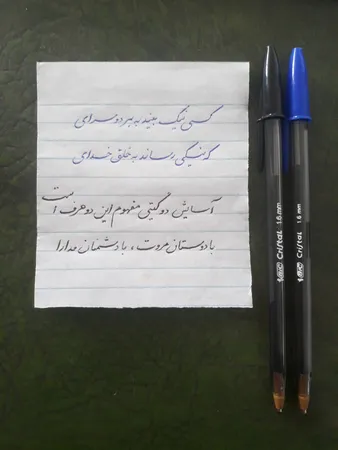 کسی نیک بیند به هر دو سرای
که نیکی رساند به خلق خدای
آسایش دو گیتی مفهوم این دو حرف است
با دوستان مروت، با دشمنان مدارا
BIC Cristal 1.6 mm
BIC Cristal 1.6 mm